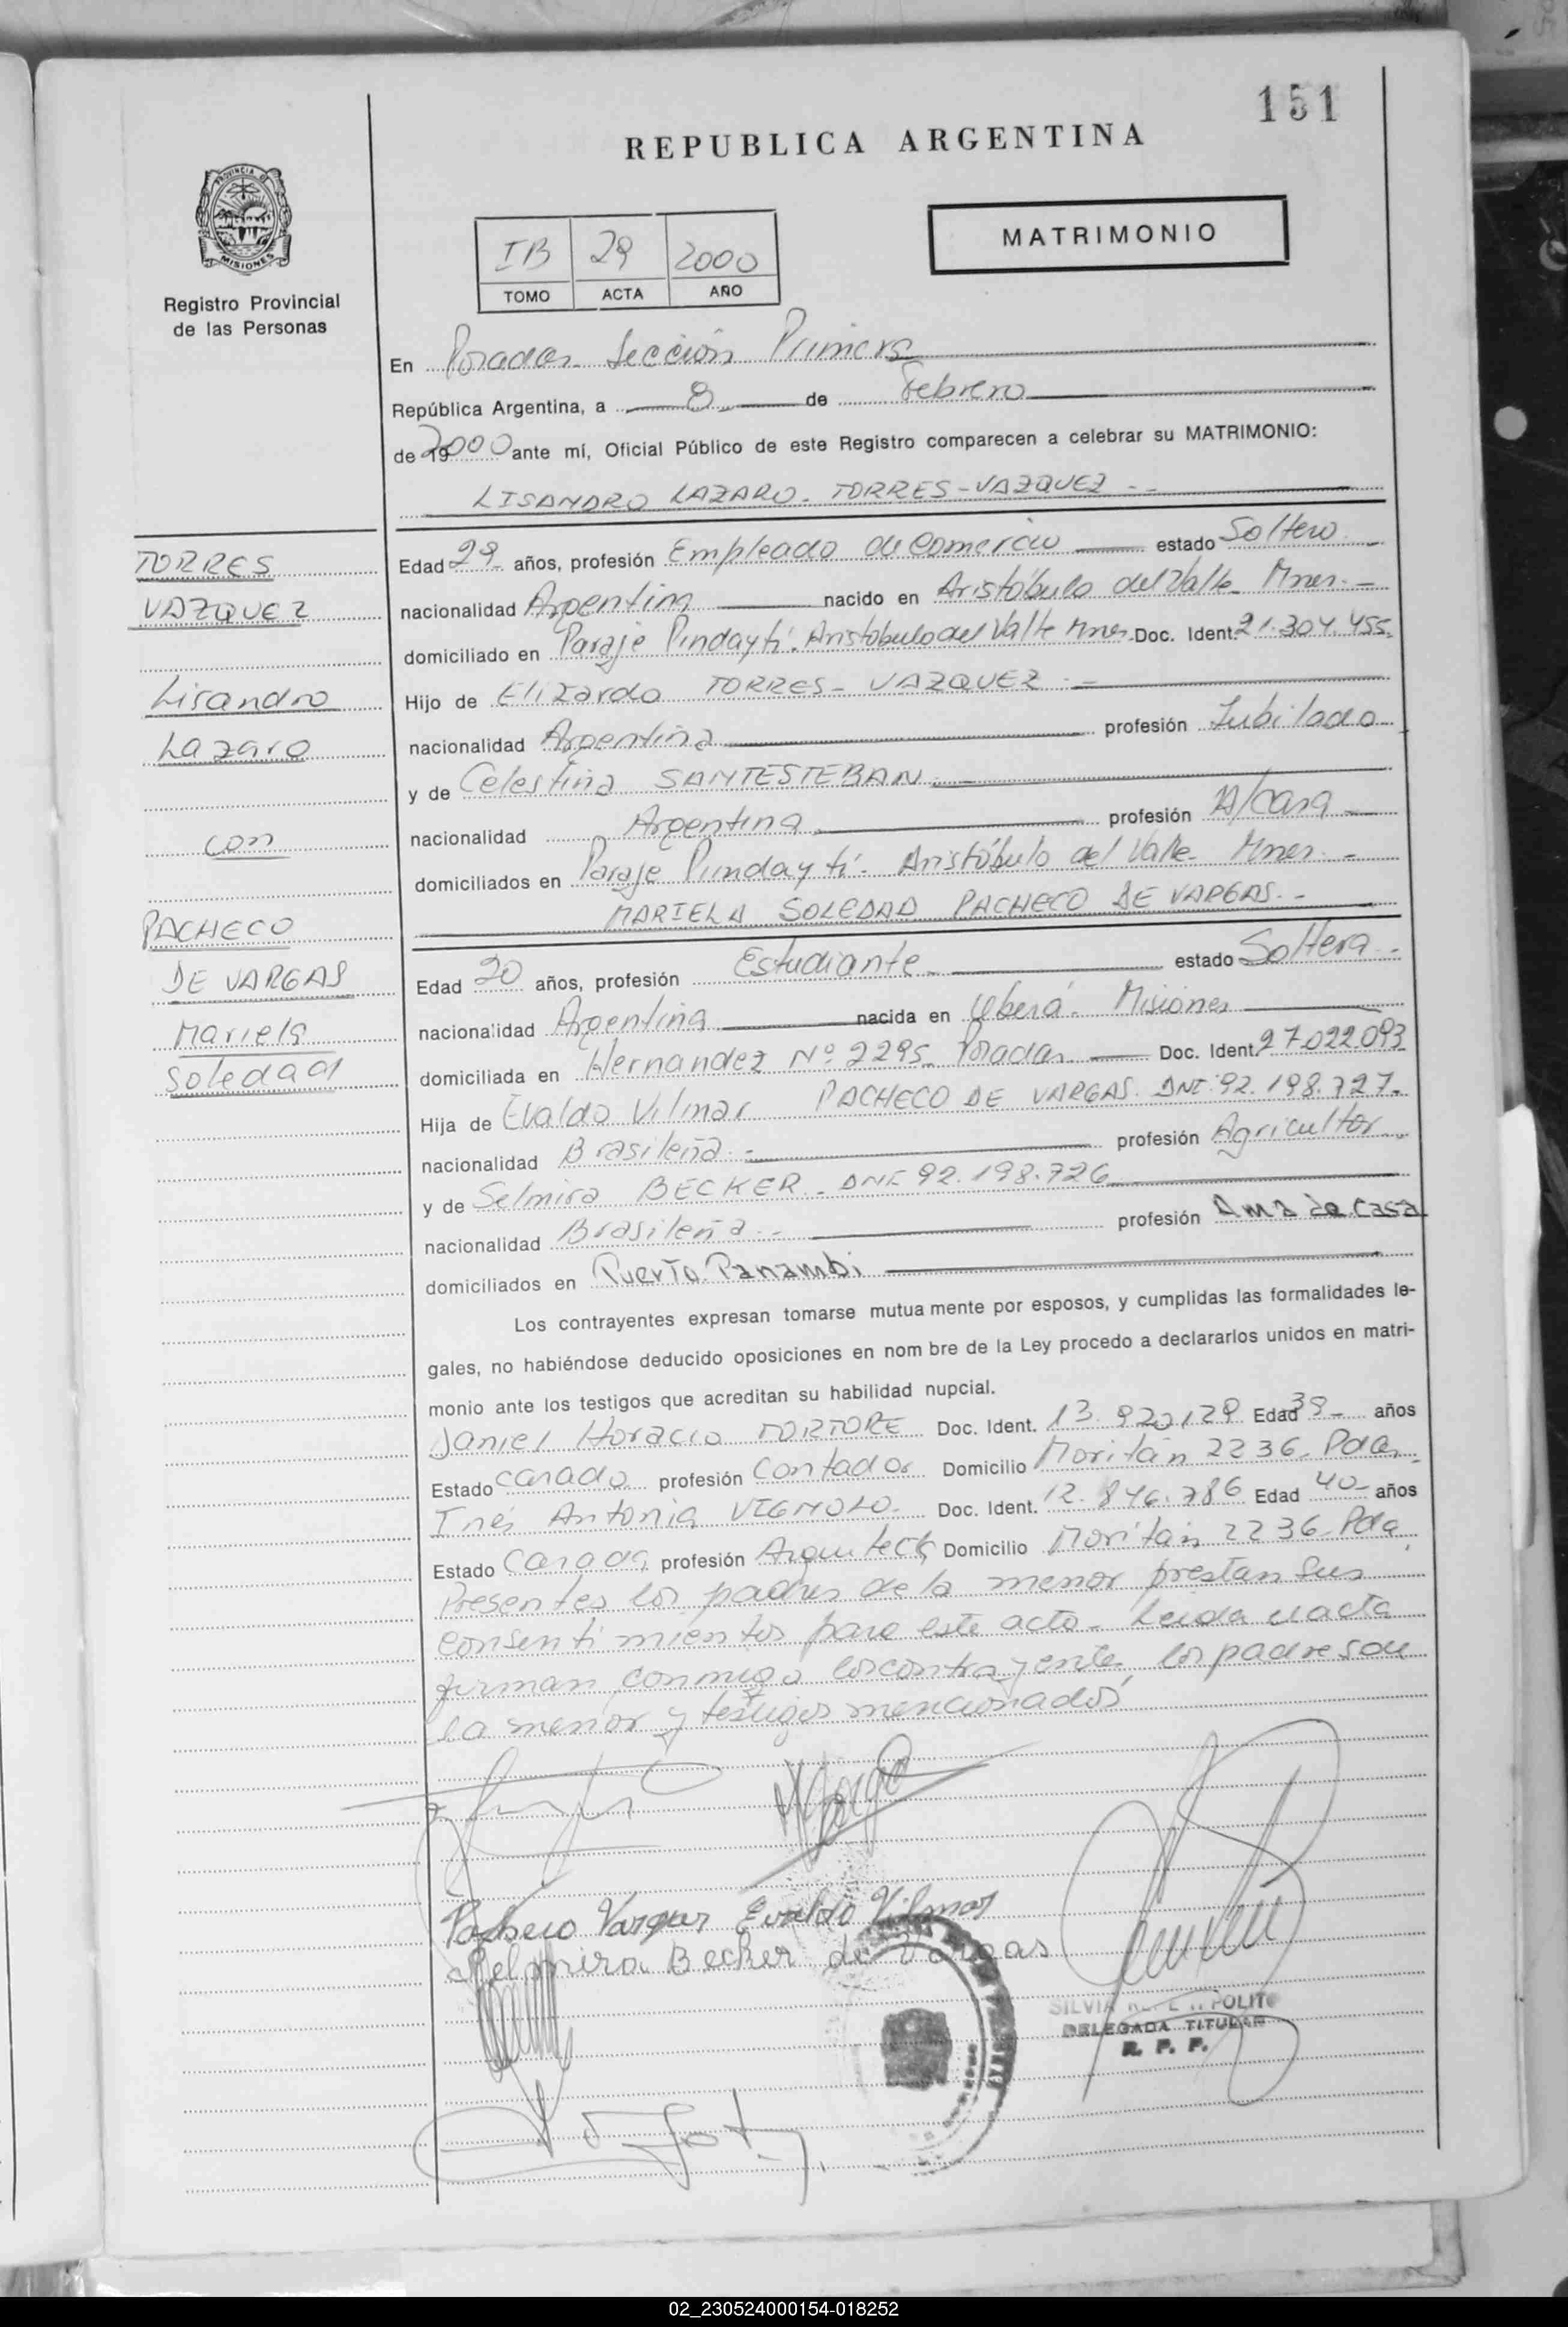 151
REPUBLICA ARGENTINA
PROVINCIA DE
MISIONES
Registro Provincial
de las Personas
IB 29 2000
TOMO ACTA AÑO
MATRIMONIO
En Posadas Sección Primera
República Argentina, a 8 de Febrero
de 2000 ante mí, Oficial Público de este Registro comparecen a celebrar su MATRIMONIO:
LISANDRO LAZARO - TORRES-VAZQUEZ --
TORRES
VAZQUEZ
Lisandro
Lazaro
con
PACHECO
DE VARGAS
Mariela
Soledad
Edad 29 años, profesión Empleado de Comercio estado Soltero
nacionalidad Argentina nacido en Aristóbulo del Valle Mnes.-
domiciliado en Paraje Pindaytí. Aristobulo del Valle Mnes. Doc. Ident. 21.304.455
Hijo de Elizardo TORRES-VAZQUEZ.-
nacionalidad Argentina profesión Jubilado
y de Celestina SANTESTEBAN
nacionalidad Argentina profesión A/Casa
domiciliados en Paraje Pindaytí. Aristóbulo del Valle Mnes.-
MARIELA SOLEDAD PACHECO DE VARGAS.-
Edad 20 años, profesión Estudiante estado Soltera
nacionalidad Argentina nacida en Oberá. Misiones
domiciliada en Hernandez Nº 2295 Posadas Doc. Ident. 27.022.093
Hija de Evaldo Vilmar PACHECO DE VARGAS. DNI: 92.198.727-
nacionalidad Brasileña profesión Agricultor
y de Selmira BECKER - DNI 92.198.726
nacionalidad Brasileña profesión Ama de casa
domiciliados en Puerto Panambi
Los contrayentes expresan tomarse mutua mente por esposos, y cumplidas las formalidades le-
gales, no habiéndose deducido oposiciones en nom bre de la Ley procedo a declararlos unidos en matri-
monio ante los testigos que acreditan su habilidad nupcial.
Daniel Horacio TORTORE Doc. Ident. 13. Edad 39 años
Estado casado profesión Contador Domicilio Moritán 2236 Pdas
Inés Antonia VIGNOLO Doc. Ident. 12.846.786 Edad 40 años
Estado Casada profesión Arquitecta Domicilio Moritán 2236 Pdas
Presentes los padres de la menor prestan sus
consentimientos para este acto - Leida el acta
firman conmigo los contrayentes, los padres de
la menor y testigos mencionados
Pacheco Vargas Evaldo Vilmar
Selmira Becker de Vargas
SILVIA POLITO
DELEGADA TITULAR
R. P. P.
02_230524000154-018252